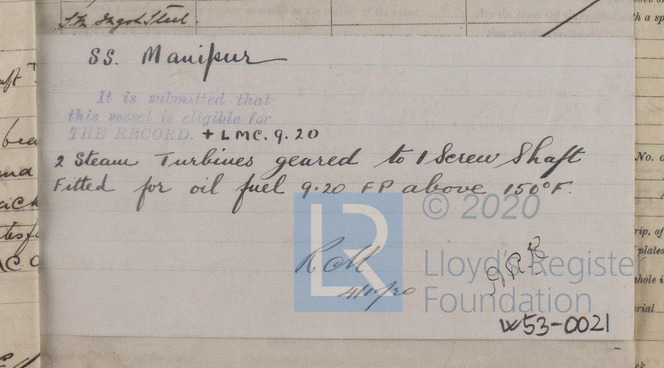 Ingot Steel.
SS. Manipur
It is submitted that
this vessel is eligible for
THE RECORD. + LMC. 9. 20
2 Steam Turbines geared to 1 Screw Shaft
Fitted for oil fuel 9.20 FP above 150°F.
© 2020
LR
Lloyd's Register
Foundation
W53-0021